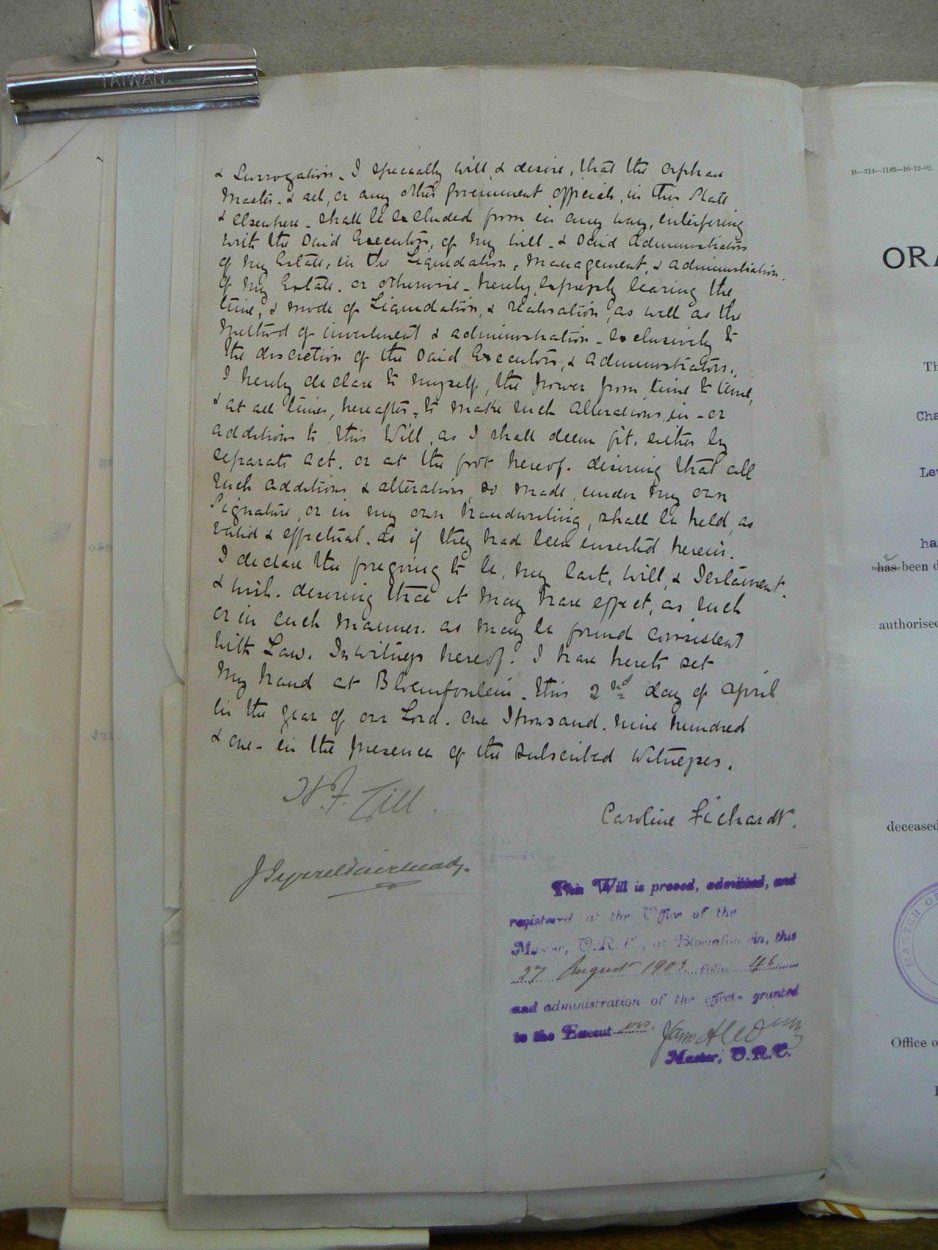 TAIWAN.
& Surrogation. I specially will & desire, that the Orphan
Master. & all, or any other Government officials, in this State
& Elsewhere. shall be excluded from in any way, interfering
with the said Executors, of my Will. & said Administrators
of my Estate, in the Liquidation, Management, & administration.
of my Estate. or otherwise - hereby, expressly leaving the
time, & mode of Liquidation, & realisation, as well as the
method of investment & administration - exclusively to
the discretion of the said Executors, & Administrators.
I hereby declare to myself, the power from time to time,
& at all times, hereafter, to make such alterations, in - or
additions to, this Will, as I shall deem fit. either by
separate act. or at the foot hereof. desiring that all
such additions & alterations, so made, under my own
Signature, or in my own handwriting, shall be held, as
valid & effectual. as if they had been inserted herein.
I declare the foregoing to be, my last, Will, & Testament.
& wish. desiring that it may have effect, as such
or in such manner. as may be found consistent
with Law. In witness hereof. I have hereto set
my hand at Bloemfontein. this 2nd day of April
in the year of our Lord. one thousand. nine hundred
& one - in the presence of the subscribed Witnesses.
Caroline Fichardt.
This Will is proved, admitted, and
registered at the Office of the
Master, O.R.C., at Bloemfontein, this
27 August 1903 folio 46
and administration of the effects granted
to the Executors.
Master, O.R.C.
B—314—1185—10-12-02.
ORA
Th
Cha
Le
ha
has been d
authorised
deceased
MASTER
Office o